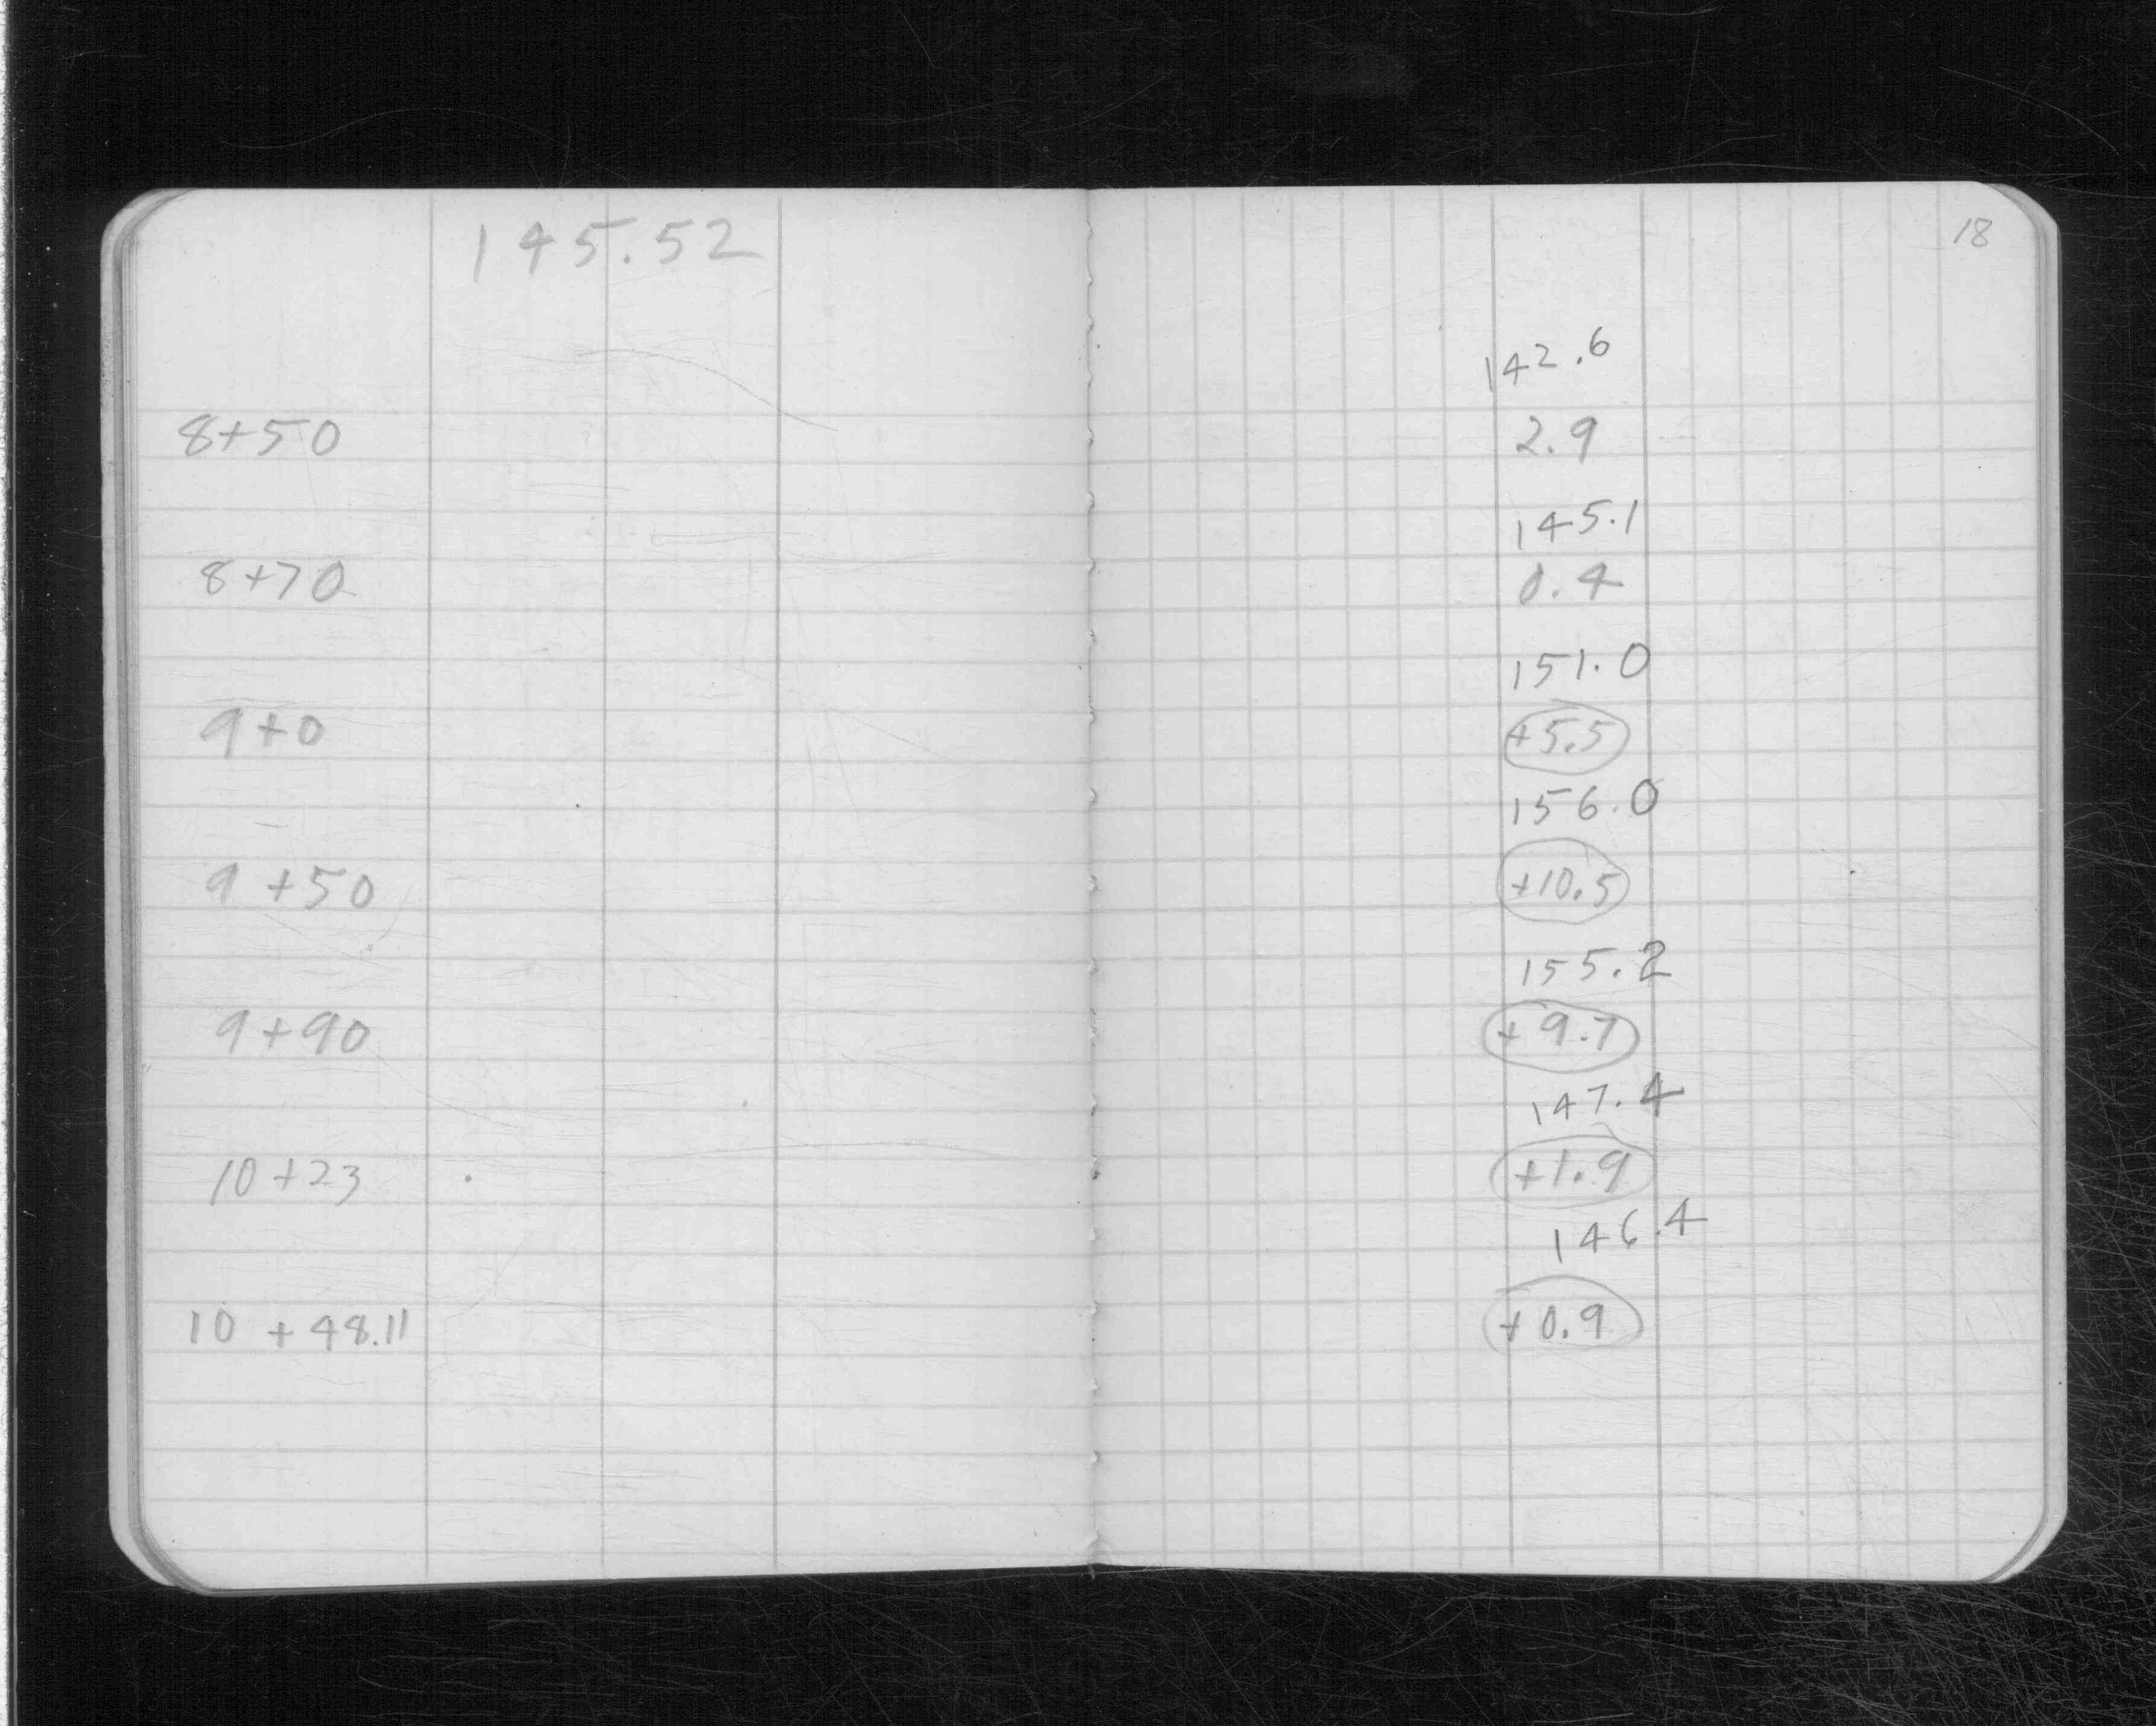 145.52
18
142.6
8+50 2.9
145.1
8+70 0.4
151.0
9+0 +5.5
156.0
9+50 +10.5
155.2
9+90 +9.7
147.4
10+23 +1.9
146.4
10+48.11 +0.9